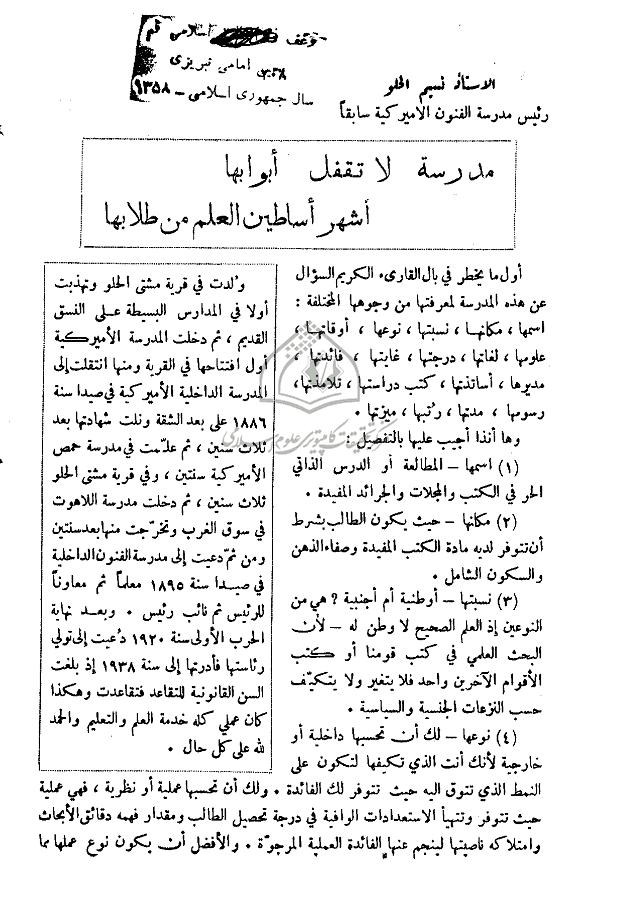 وقف اسلامی قم
امامی تبریزی
سال جمهوری اسلامی - ۱۳۵۸
الاستاذ نسيم الحلو
رئيس مدرسة الفنون الاميركية سابقاً
مدرسة لا تقفل أبوابها
أشهر أساطين العلم من طلابها
أول ما يخطر في بال القارىء الكريم السؤال
عن هذه المدرسة لمعرفتها من وجوهها المختلفة :
اسمها ، مكانها ، نسبتها ، نوعها ، أوقاتها ،
علومها ، لغاتها ، درجتها ، غايتها ، فائدتها ،
مديرها ، أساتذتها ، كتب دراستها ، تلامذتها ،
رسومها ، مدتها ، رتبها ، ميزتها .
وها أنذا أجيب عليها بالتفصيل :
(١) اسمها – المطالعة أو الدرس الذاتي
الحر في الكتب والمجلات والجرائد المفيدة .
(٢) مكانها – حيث يكون الطالب بشرط
أن تتوفر لديه مادة الكتب المفيدة وصفاء الذهن
والسكون الشامل .
(٣) نسبتها – أوطنية أم أجنبية ؟ هي من
النوعين إذ العلم الصحيح لا وطن له – لأن
البحث العلمي في كتب قومنا أو كتب
الأقوام الآخرين واحد فلا يتغير ولا يتكيّف
حسب النزعات الجنسية والسياسية .
(٤) نوعها – لك أن تحسبها داخلية أو
خارجية لأنك أنت الذي تكيفها لتكون على
وُلدت في قرية مشتى الحلو وتهذبت
أولا في المدارس البسيطة على النسق
القديم ، ثم دخلت المدرسة الأميركية
أول افتتاحها في القرية ومنها انتقلت إلى
المدرسة الداخلية الأميركية في صيدا سنة
١٨٨٦ على بعد الشقة ونلت شهادتها بعد
ثلاث سنين ، ثم علّمت في مدرسة حمص
الأميركية سنتين ، وفي قرية مشتى الحلو
ثلاث سنين ، ثم دخلت مدرسة اللاهوت
في سوق الغرب وتخرّجت منها بعد سنتين
ومن ثم دعيت إلى مدرسة الفنون الداخلية
في صيدا سنة ١٨٩٥ معلماً ثم معاوناً
للرئيس ثم نائب رئيس . وبعد نهاية
الحرب الأولى سنة ١٩٢٠ دُعيت إلى تولي
رئاستها فأدرتها إلى سنة ١٩٣٨ إذ بلغت
السن القانونية للتقاعد فتقاعدت وهكذا
كان عملي كله خدمة العلم والتعليم والحمد
لله على كل حال .
النمط الذي تتوق اليه حيث تتوفر لك الفائدة . ولك أن تحسبها عملية أو نظرية ، فهي عملية
حيث تتوفر وتتهيأ الاستعدادات الوافية في درجة تحصيل الطالب ومقدار فهمه دقائق الأبحاث
وامتلاكه ناصيتها لينجم عنها الفائدة العملية المرجوّة . والأفضل أن يكون نوع عملها مما